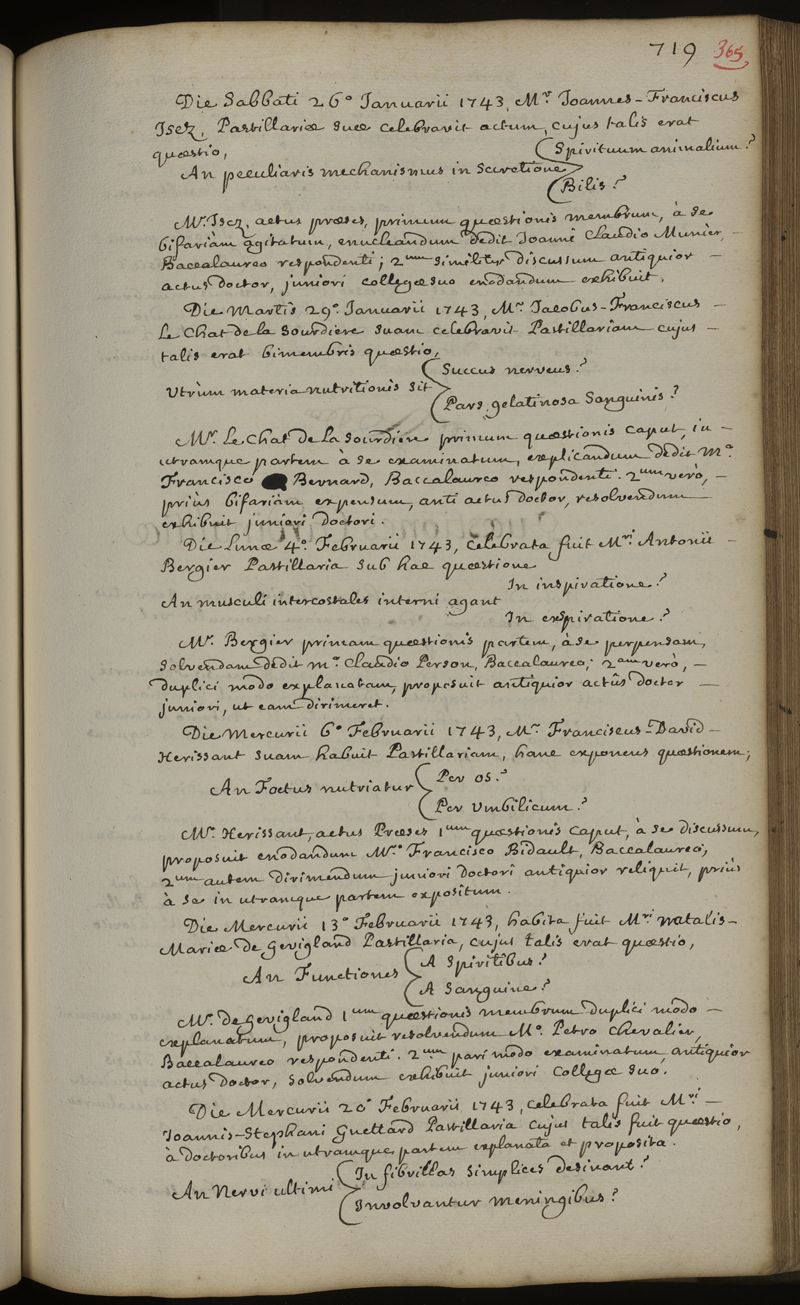 719 365
Die Sabbati 26° Januarii 1743, Mr. Joannes-Franciscus
Isez, Pastillariæ suæ celebravit actum, cujus talis erat
quæstio,
An peculiaris mechanismus in secretione { Spirituum animalium?
Bilis?
Mr. Isez, actus præses, primum quæstionis membrum, à se
bifariàm agitatum, enucleandum dedit Joanni Claudio Munier,
Baccalaureo respondenti; 2um similiter discussum antiquior
actus doctor, juniori collegæ suo enodandum exhibuit.
Die Martis 29° Januarii 1743, Mr. Jacobus-Franciscus
Le Chat de la Sourdiere suam celebravit Pastillariam cujus
talis erat bimembris quæstio,
Utrùm materia nutritionis sit { Succus nerveus?
Pars gelatinosa Sanguinis?
Mr. Le Chat de La Sourdiere primum quæstionis caput, in
utramque partem à se examinatum, explicandum dedit M°
Francisco Bernard, Baccalaureo respondenti. 2um verò,
priùs bifariàm expensum, anti actus doctor, resolvendum
exhibuit juniori doctori.
Die Lunæ 4° Februarii 1743, celebrata fuit Mri Antonii
Bergier Pastillaria sub hac quæstione
In inspiratione?
An musculi intercostales interni agant
In exspiratione?
Mr. Bergier primam quæstionis partem, à se perpensam,
solvendam dedit m° Claudio Person, Baccalaureo; 2am verò,
duplici modo explanatam, proposuit antiquior actûs doctor
juniori, ut eam dirimeret.
Die Mercurii 6° Februarii 1743, Mr. Franciscus-David
Herissant suam habuit Pastillariam, hanc exponens quæstionem;
An Foetus nutriatur { Per os?
Per Umbilicum?
Mr. Herissant, actus Præses 1um quæstionis caput, à se discussum,
proposuit enodandum M° Francisco Bidault, Baccalaureo,
2um autem dirimendum juniori doctori antiquior reliquit, priùs
à se in utramque partem expositum.
Die Mercurii 13° Februarii 1743, habita fuit Mri Natalis-
Mariæ de Gevigland Pastillaria, cujus talis erat quæstio,
An Functiones { A Spiritibus?
A Sanguine?
Mr. de Gevigland 1um quæstionis membrum duplici modo
explanatum, proposuit resolvendum M° Petro Chevalier,
Baccalaureo respondenti. 2um pari modo examinatum, antiquior
actus doctor, solvendum exhibuit juniori Collegæ suo.
Die Mercurii 20° Februarii 1743, celebrata fuit Mri
Joannis-Stephani Guettard Pastillaria cujus talis fuit quæstio,
à doctoribus in utramque partem explanata et proposita.
An Nervi ultimi { In fibrillas simplices desinant?
Involvantur meningibus?